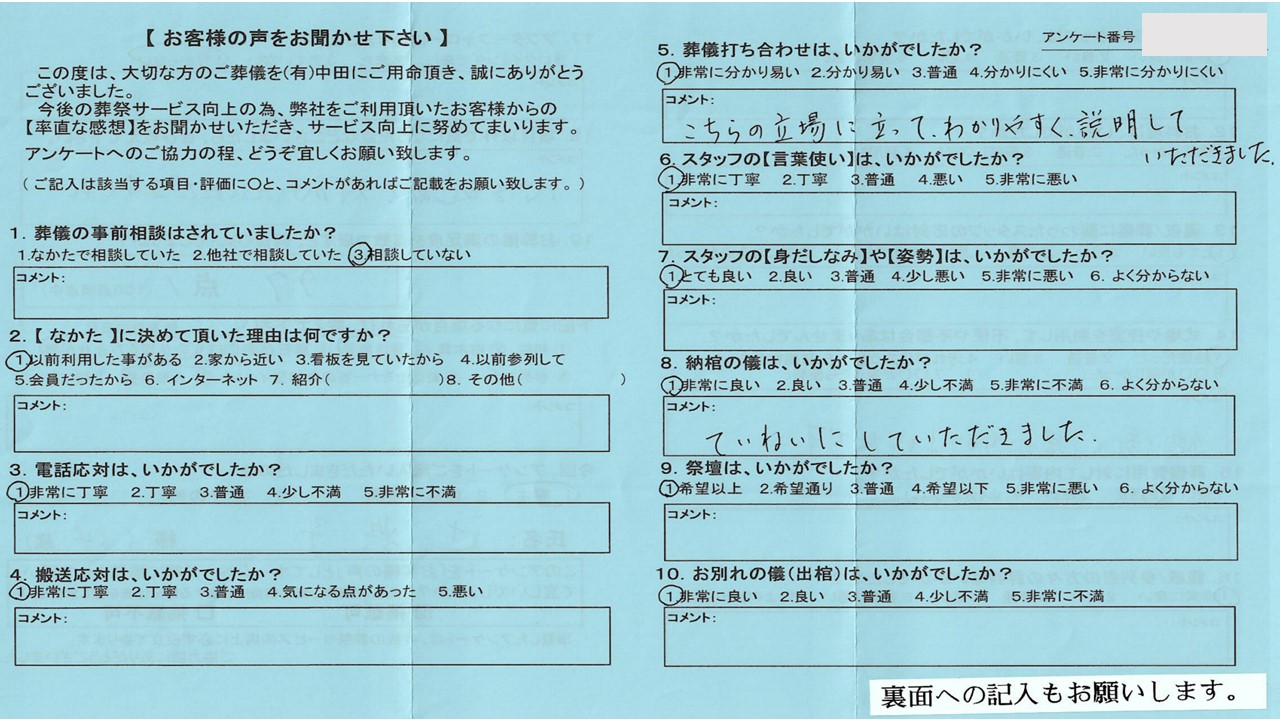 【 お客様の声をお聞かせ下さい 】
この度は、大切な方のご葬儀を(有)中田にご用命頂き、誠にありがとう
ございました。
今後の葬祭サービス向上の為、弊社をご利用頂いたお客様からの
【率直な感想】をお聞かせいただき、サービス向上に努めてまいります。
アンケートへのご協力の程、どうぞ宜しくお願い致します。
( ご記入は該当する項目・評価に○と、コメントがあればご記載をお願い致します。 )
1. 葬儀の事前相談はされていましたか?
1.なかたで相談していた 2.他社で相談していた ③相談していない
コメント:
2. 【 なかた 】に決めて頂いた理由は何ですか?
①以前利用した事がある 2.家から近い 3.看板を見ていたから 4.以前参列して
5.会員だったから 6. インターネット 7. 紹介( )8. その他( )
コメント:
3. 電話応対は、いかがでしたか?
①非常に丁寧 2.丁寧 3.普通 4.少し不満 5.非常に不満
コメント:
4. 搬送応対は、いかがでしたか?
①非常に丁寧 2.丁寧 3.普通 4.気になる点があった 5.悪い
コメント:
アンケート番号
5. 葬儀打ち合わせは、いかがでしたか?
①非常に分かり易い 2.分かり易い 3.普通 4.分かりにくい 5.非常に分かりにくい
コメント:
こちらの立場に立って、わかりやすく、説明して
いただきました。
6. スタッフの【言葉使い】は、いかがでしたか?
①非常に丁寧 2.丁寧 3.普通 4.悪い 5.非常に悪い
コメント:
7. スタッフの【身だしなみ】や【姿勢】は、いかがでしたか?
①とても良い 2.良い 3.普通 4.少し悪い 5.非常に悪い 6. よく分からない
コメント:
8. 納棺の儀は、いかがでしたか?
①非常に良い 2.良い 3.普通 4.少し不満 5.非常に不満 6. よく分からない
コメント:
ていねいにしていただきました。
9. 祭壇は、いかがでしたか?
①希望以上 2.希望通り 3.普通 4.希望以下 5.非常に悪い 6. よく分からない
コメント:
10. お別れの儀(出棺)は、いかがでしたか?
①非常に良い 2.良い 3.普通 4.少し不満 5.非常に不満
コメント:
裏面への記入もお願いします。